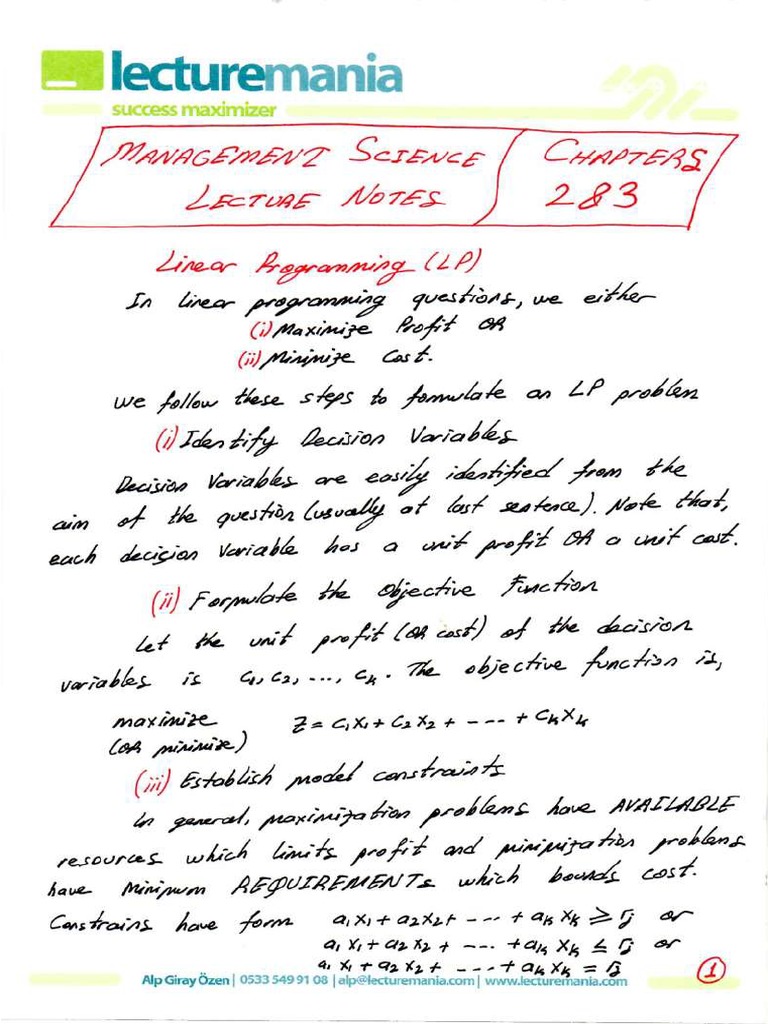 lecturemania
success maximizer
MANAGEMENT SCIENCE
LECTURE NOTES
CHAPTERS
2&3
Linear Programming (LP)
In linear programming questions, we either
(i) Maximize Profit OR
(ii) Minimize Cost.
We follow these steps to formulate an LP problem
(i) Identify Decision Variables
Decision Variables are easily identified from the
aim of the question (usually at last sentence). Note that,
each decision variable has a unit profit OR a unit cost.
(ii) Formulate the Objective Function
Let the unit profit (OR cost) of the decision
variables is c₁, c₂, ..., cₖ. The objective function is,
maximize Z = c₁x₁ + c₂x₂ + ---- + cₖxₖ
(OR minimize)
(iii) Establish model constraints
In general, maximization problems have AVAILABLE
resources which limits profit and minimization problems
have Minimum REQUIREMENTs which bounds cost.
Constrains have form a₁x₁ + a₂x₂ + ---- + aₖxₖ ≥ rⱼ or
a₁x₁ + a₂x₂ + ---- + aₖxₖ ≤ rⱼ or
a₁x₁ + a₂x₂ + ---- + aₖxₖ = rⱼ
1
Alp Giray Özen | 0533 549 91 08 | alp@lecturemania.com | www.lecturemania.com